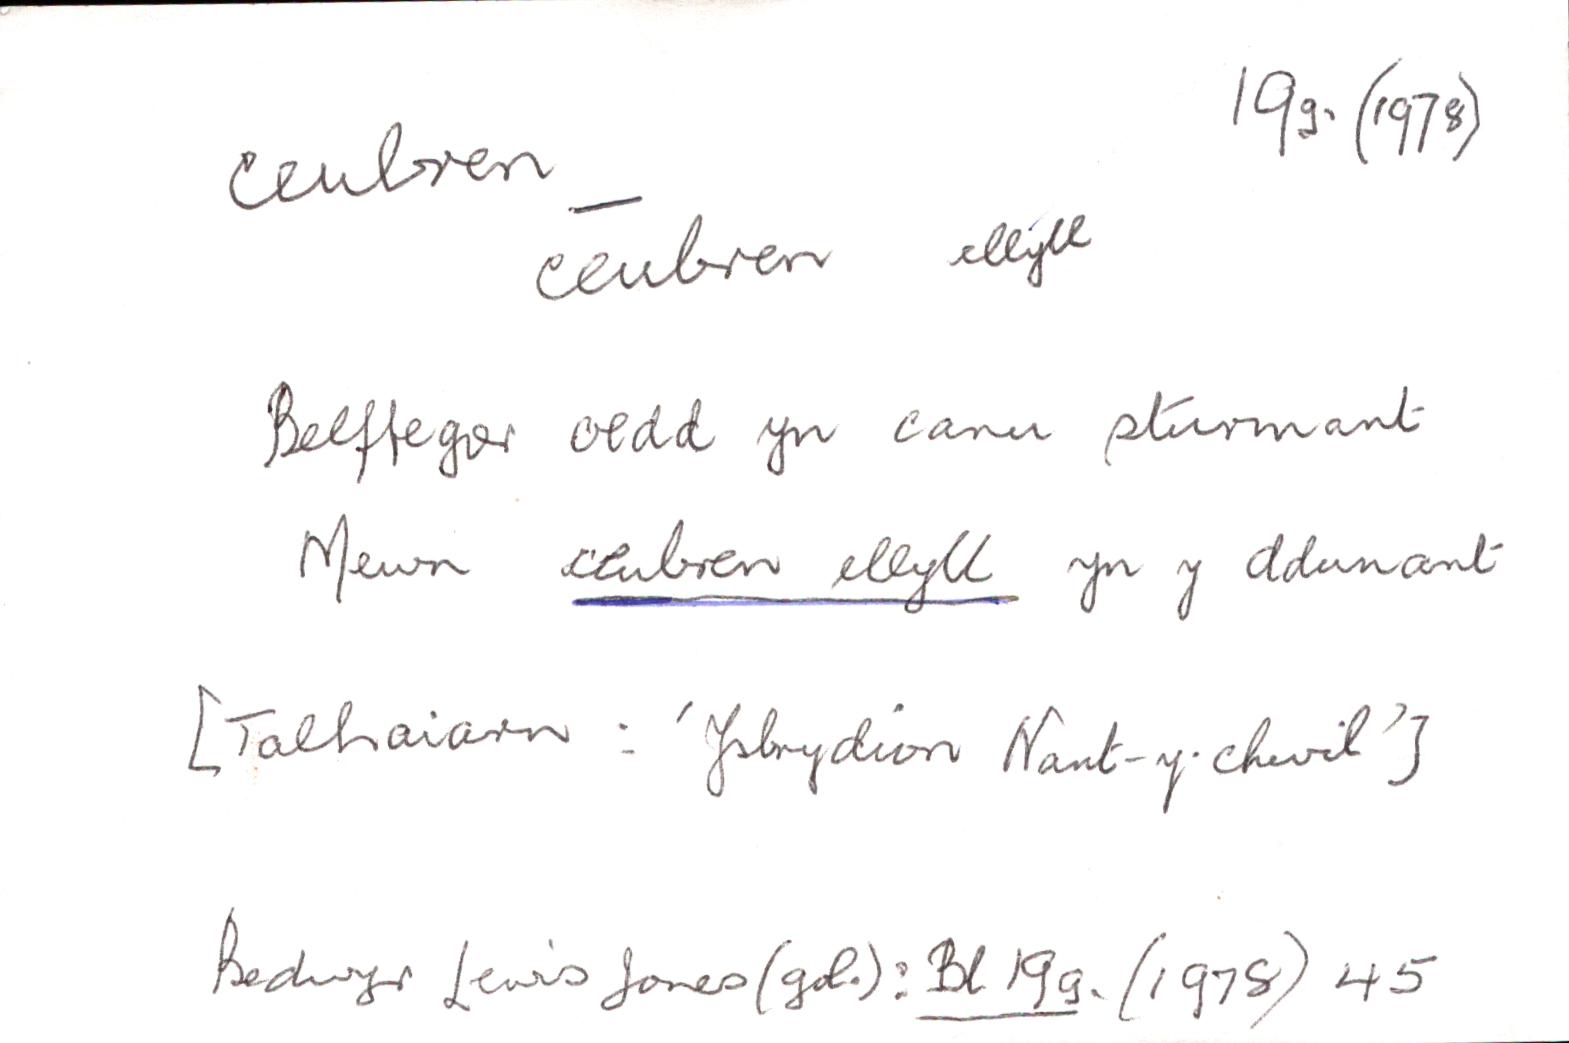 19g. (1978)
ceubren –
ceubren ellyll
Belffegor oedd yn canu sturmant
Mewn ceubren ellyll yn y ddunant
[Talhaiarn : 'Ysbrydion Nant-y-chwil']
Bedwyr Lewis Jones (gol.): Bl 19g. (1978) 45